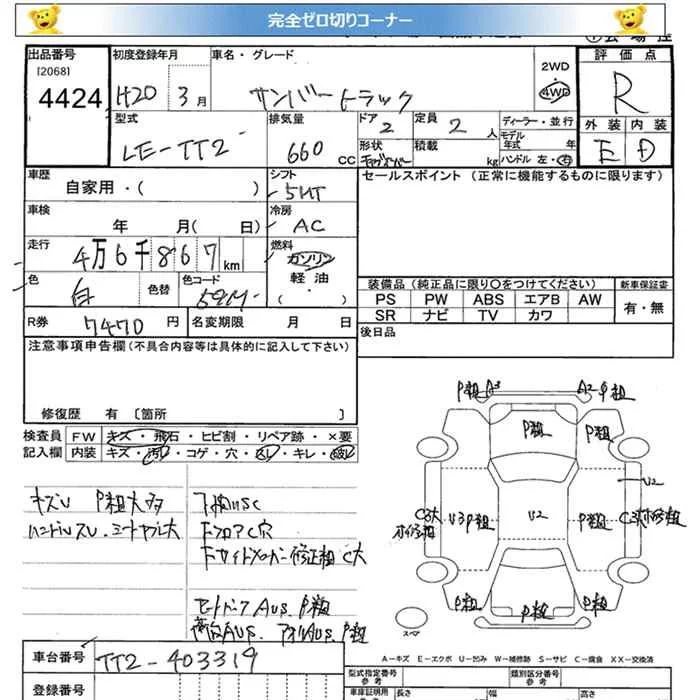 完全ゼロ切りコーナー
出品番号
[2068]
4424
初度登録年月
H20 3月
車名・グレード
サンバートラック
2WD
4WD
評価点
R
外装 内装
E D
型式
LE-TT2-
排気量
660 CC
ドア 2
定員 2 人
ディーラー・並行
モデル
年式 年
形状
積載 kg
ハンドル 左・右
車歴
自家用・( )
シフト
5MT
セールスポイント (正常に機能するものに限ります)
車検
年 月( 日)
冷房
AC
走行
4万6千867km
燃料
ガソリン
軽油
( )
色
白
色替
色コード
R券
7470円
名変期限 月 日
装備品(純正品に限り○をつけてください)
新車保証書
PS PW ABS エアB AW
SR ナビ TV カワ
有・無
後日品
注意事項申告欄(不具合内容等は具体的に記入して下さい)
修復歴 有 [箇所 ]
検査員
記入欄
FW キズ・飛石・ヒビ割・リペア跡・×要
内装 キズ・汚れ・コゲ・穴・・キレ・
キズU P粗大多
下廻USC
ハンドルスレ・シートヤブレ大
FフロアC穴
修正粗 C大
AUS. P粗
AUS. P粗
P粗 A3
A2 P粗
P粗
P粗
U2
C3大
U3 P粗
U2
P粗
P粗
P粗
P粗
スペア
A-キズ E-エクボ U-凹み W-補修跡 S-サビ C-腐食 XX-交換済
車台番号
TT2-403319
登録番号
型式指定番号
参考
類別区分番号
参考
車庫証明用
長さ
幅
高さ